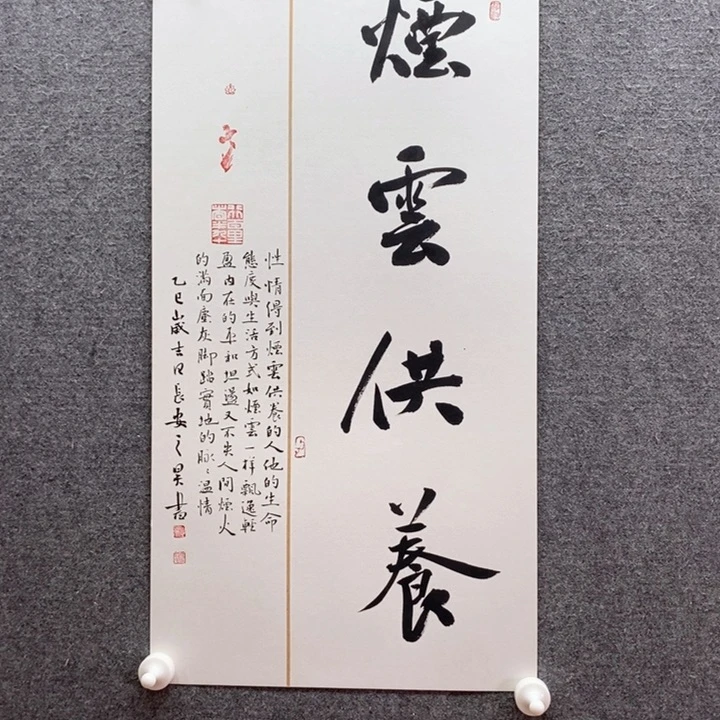 煙雲供養
性情得到煙雲供養的人他的生命
態度與生活方式如煙雲一样飄逸輕
盈内在的平和坦蕩又不失人間煙火
的滿面塵灰脚踏實地的脉々温情
乙巳歲吉日長安之昊書